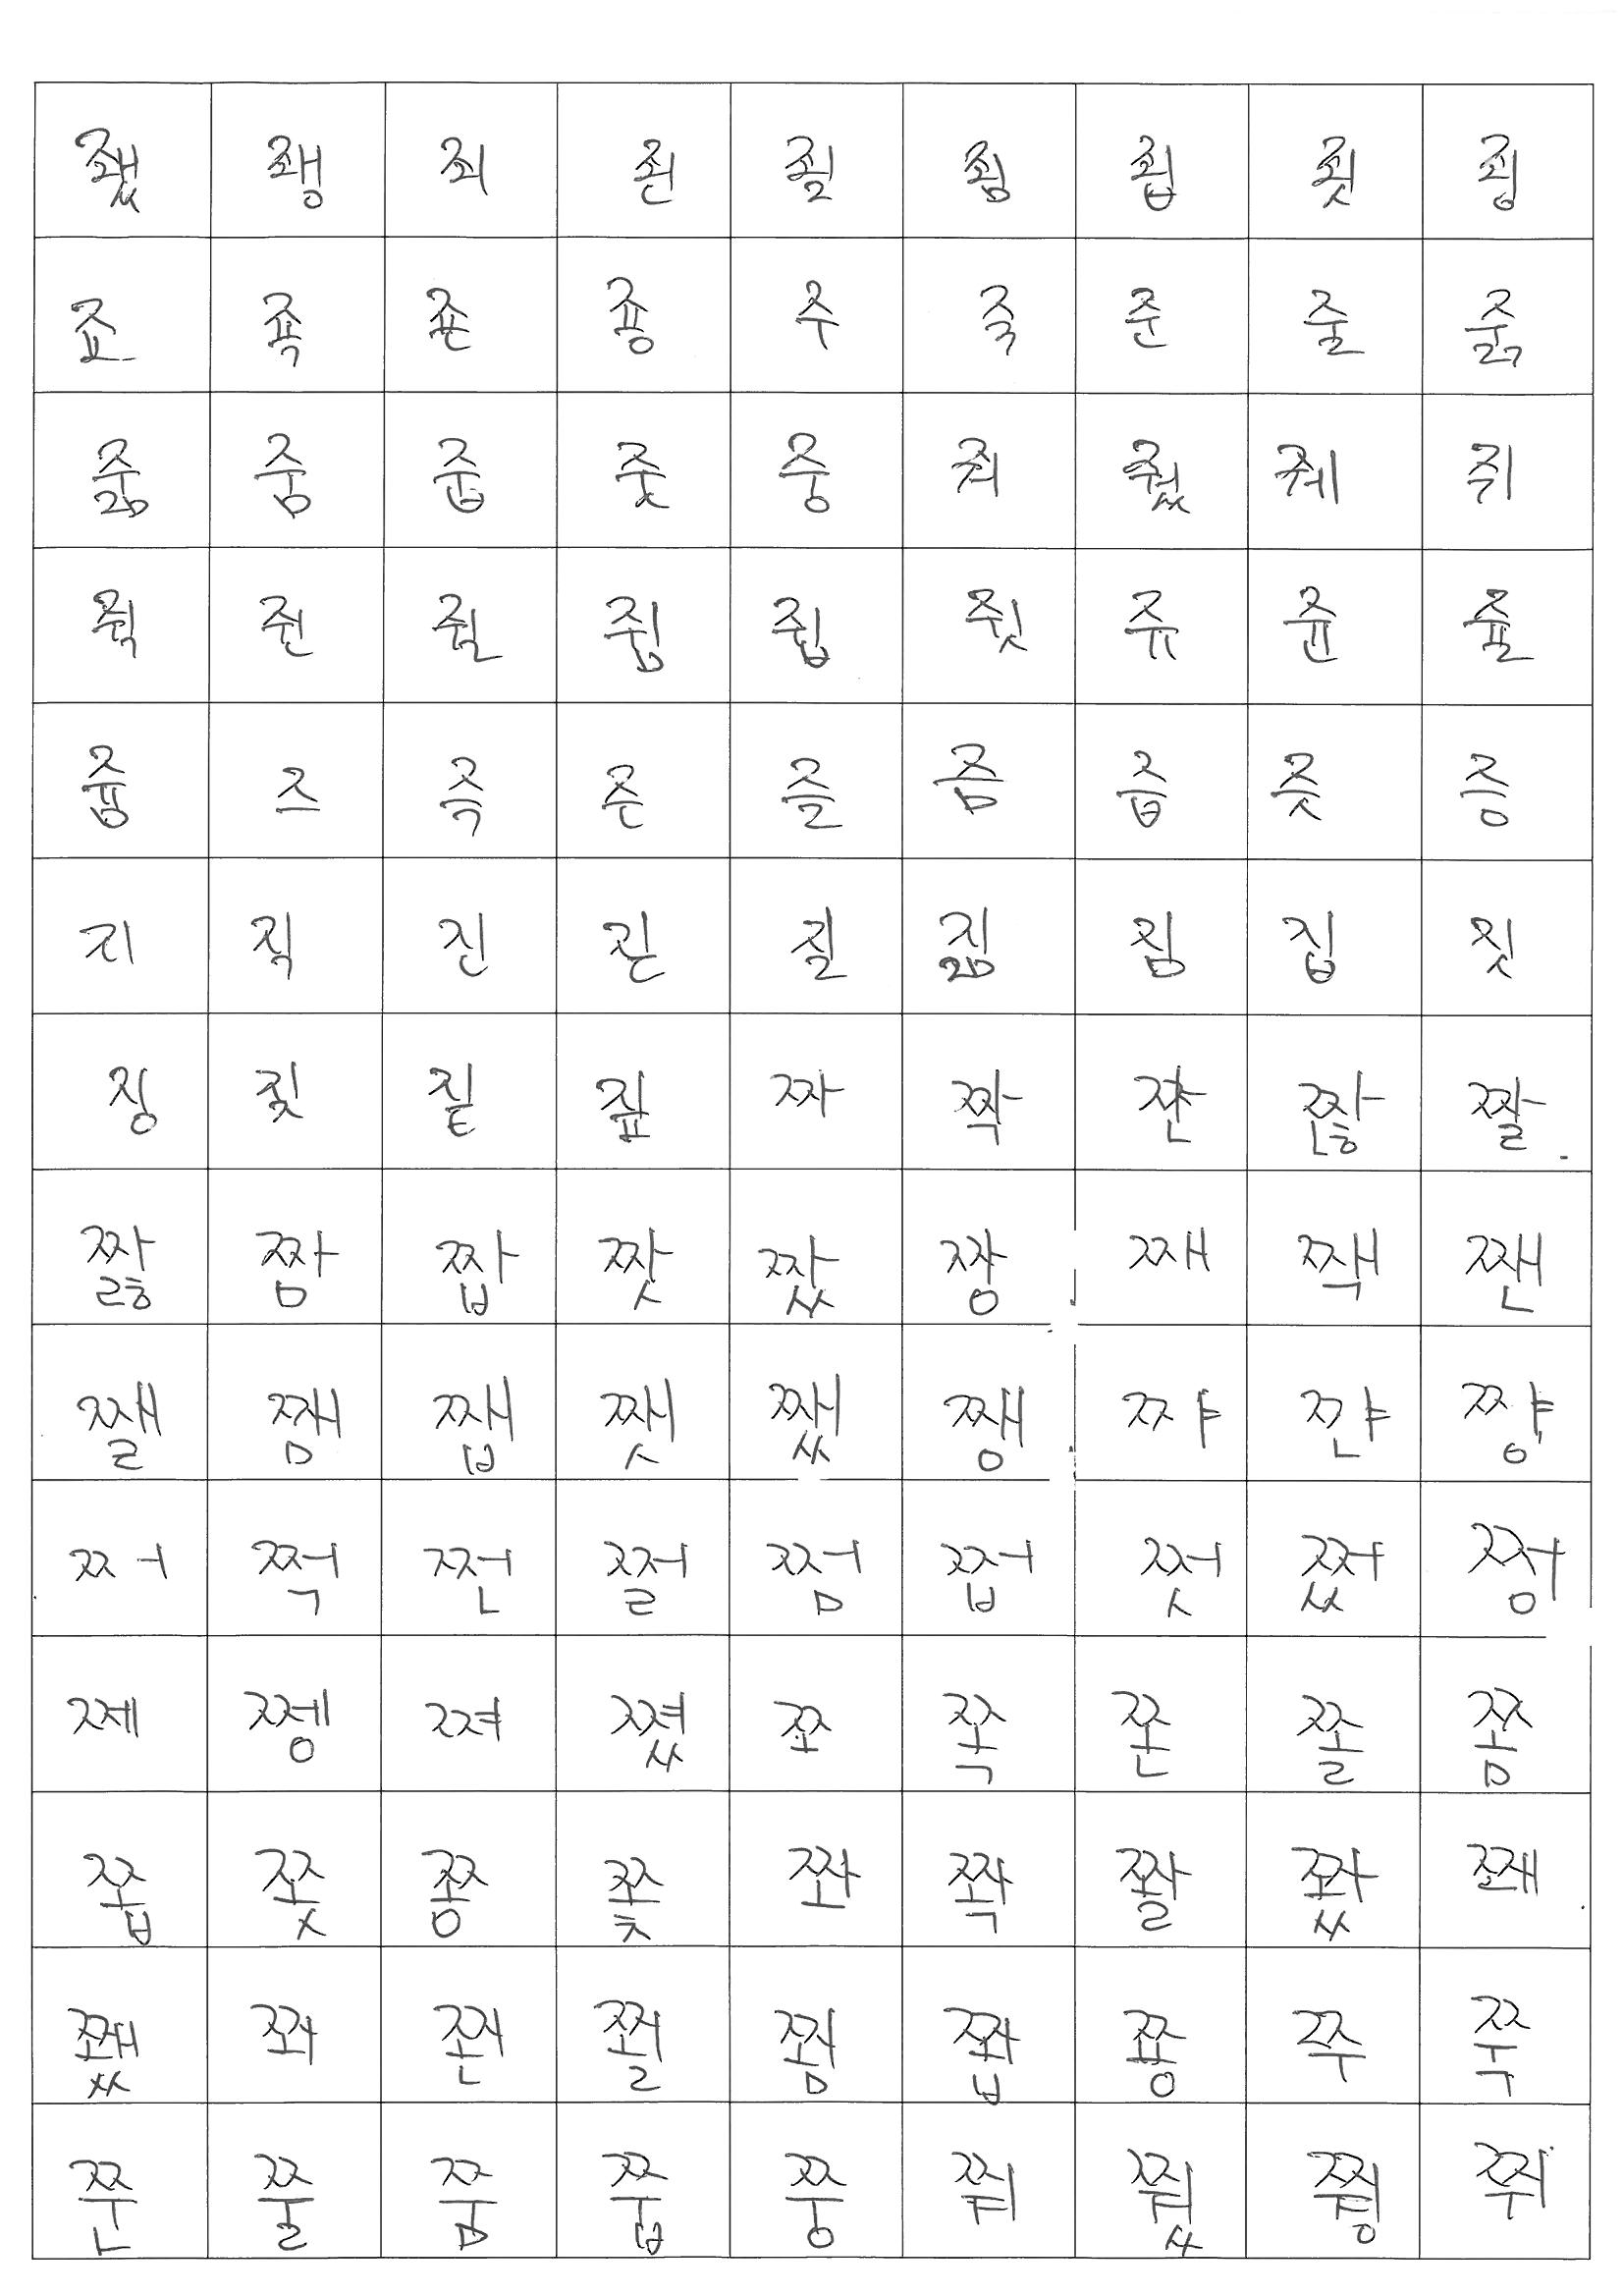 좼 좽 죄 죈 죌 죔 죕 죗 죙
죠 죡 죤 죵 주 죽 준 줄 줅
줆 줌 줍 줏 중 줘 줬 줴 쥐
쥑 쥔 쥘 쥠 쥡 쥣 쥬 쥰 쥴
쥼 즈 즉 즌 즐 즘 즙 즛 증
지 직 진 짇 질 짊 짐 집 짓
징 짖 짙 짚 짜 짝 짠 짢 짤
짫 짬 짭 짯 짰 짱 째 짹 짼
쨀 쨈 쨉 쨋 쨌 쨍 쨔 쨘 쨩
쩌 쩍 쩐 쩔 쩜 쩝 쩟 쩠 쩡
쩨 쩽 쪄 쪘 쪼 쪽 쫀 쫄 쫌
쫍 쫏 쫑 쫓 쫘 쫙 쫠 쫬 쫴
쬈 쬐 쬔 쬘 쬠 쬡 쭁 쭈 쭉
쭌 쭐 쭘 쭙 쭝 쭤 쭸 쭹 쮜